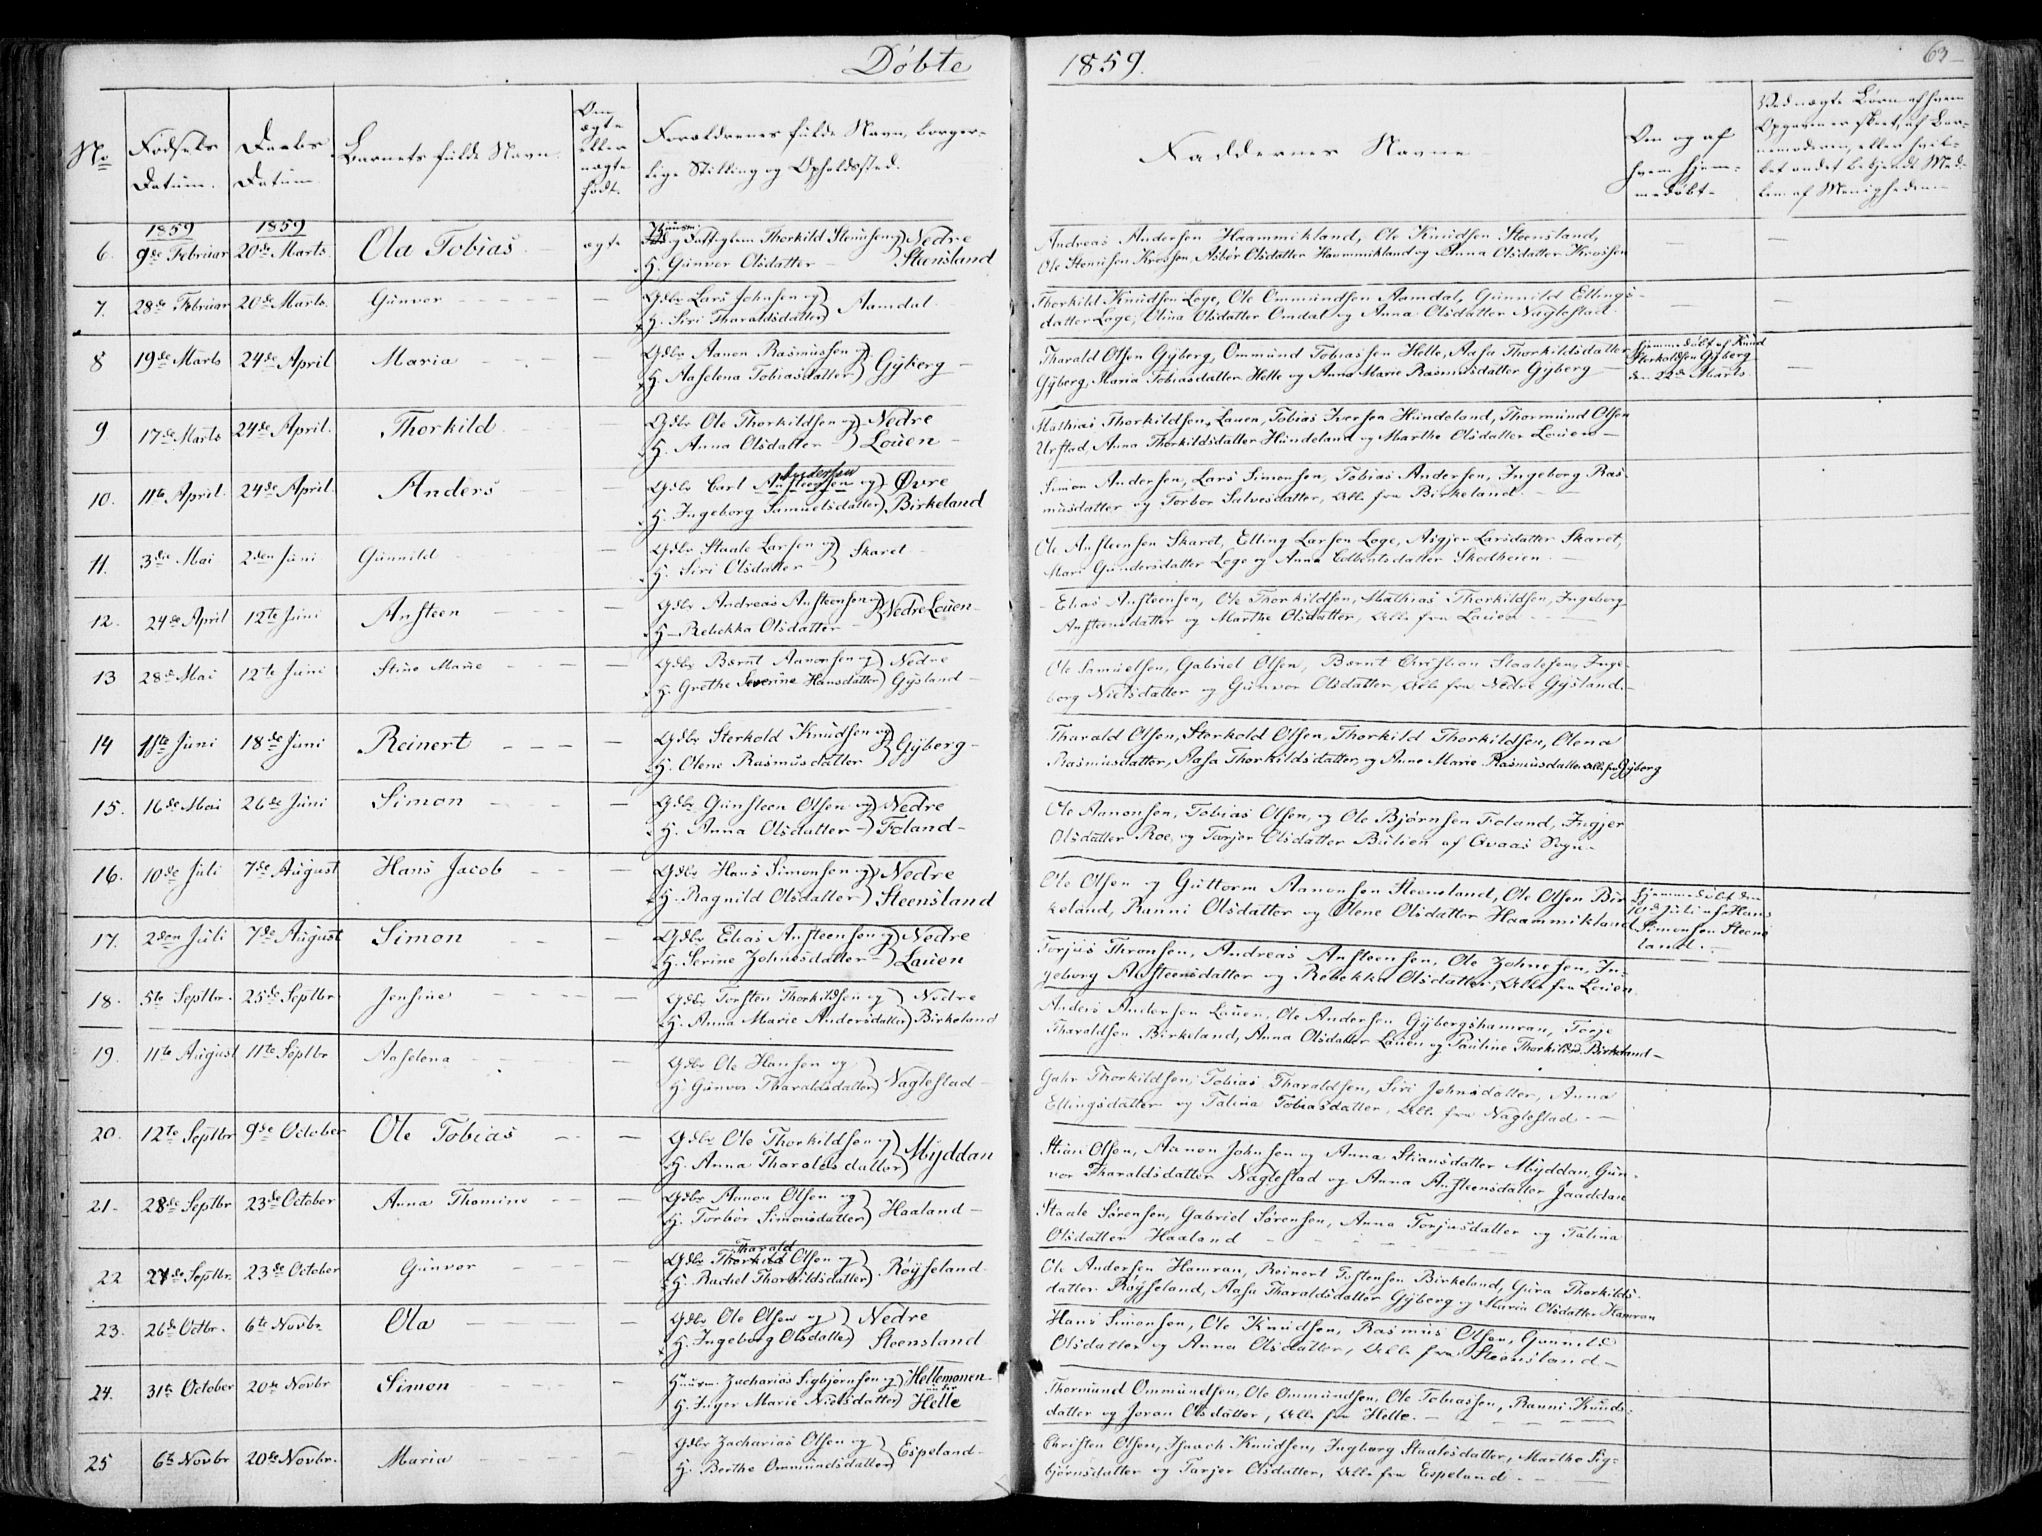 Døbte 1859.
63
No
Fødsels Datum.
Daabs Datum
Barnets fulde Navn.
Om ægte eller uægte født.
Forældrenes fulde Navn, borger-
lige Stilling og Opholdssted.
Faddernes Navne
Om og af hvem hjem-
medøbt.
1859 1859
6. 9de Februar 20de Marts Ola Tobias ægte Thorkild Stenersen og Nedre
H. Gunvor Olsdatter Steensland
Andreas Andersen Haammikland, Ole Knudsen Steensland,
Ole Stenersen Krossen, Asbor Olsdatter Haammikland og Anna Olsdatter Krossen
7. 28de Februar 20de Marts. Gunvor Gdbr Lars Johnsen og
H. Siri Tharaldsdatter Aamdal
Thorkild Knudsen Loge, Ole Ommundsen Aamdal, Gunnild Ellings-
datter Loge, Olina Olsdatter Omdal og Anna Olsdatter Naglestad.
8 19de Marts 24de April Maria Gdbr Aanon Rasmussen og
H. Aaselena Tobiasdatter Gyberg
Tharald Olsen Gyberg, Ommund Tobiassen Helle, Aasa Thorkildsdatter
Gyberg, Maria Tobiasdatter Helle og Anna Marie Rasmusdatter Gyberg
Hjemmedøbt af Knud
Sterkoldsen Gyberg
den 22de Marts
9 17de Marts 24de April. Thorkild Gdbr Ole Thorkildsen og Nedre
H. Anna Olsdatter Louen
Mathias Thorkildsen, Lauen, Tobias Iversen Hundeland, Thormund Olsen
Urstad, Anna Thorkildsdatter Hundeland og Marthe Olsdatter Louen
10. 11te April. 24de April. Anders Gdbr Carl Andersen og Øvre
H. Ingeborg Samuelsdatter Birkeland
Simon Andersen, Lars Simonsen, Tobias Andersen, Ingeborg Ras-
musdatter og Torbor Salvesdatter, Alle fra Birkeland.
11. 3die Mai 2den Juni Gunnild Gdbr Staale Larsen og
H. Siri Olsdatter Skaret
Ole Ansteensen Skaret, Elling Larsen Loge, Asgjer Larsdatter Skaret,
Mari Gundersdatter Loge og Anna Salvesdatter Skedheien
12. 24de April 12te Juni Ansteen Gdbr Andreas Ansteensen og
H. Rebekka Olsdatter Nedre Louen
Elias Ansteensen, Ole Thorkildsen, Mathias Thorkildsen, Ingeborg
Ansteensdatter og Marthe Olsdatter, Alle fra Lauen
13 28de Mai 12te Juni Stine Marie Gdbr Bernt Aanonsen og Nedre
H. Grethe Severine Hansdatter Gysland
Ole Samuelsen, Gabriel Olsen, Bernt Christian Staalesen, Inge-
borg Nielsdatter og Gunvor Olsdatter, Alle fra Nedre Gysland.
14 11te Juni 18de Juni Reinert Gdbr Sterkold Knudsen og
H. Olene Rasmusdatter Gyberg
Tharald Olsen, Sterkold Olsen, Thorkild Thorkildsen, Olena
Rasmusdatter, Aasa Thorkildsdatter, og Anne Marie Rasmusdatter Alle fra Gyberg
15. 16de Mai 26de Juni Simon Gdbr Gunsteen Olsen og Nedre
H. Anna Olsdatter Foland
Ole Aanonsen, Tobias Olsen, og Ole Bjørnsen Foland, Ingjer
Olsdatter Roe, og Tarjer Olsdatter Bulien af Qvaas Sogn
16. 10de Juli 7de August Hans Jacob Gdbr Hans Simonsen og Nedre
H. Ragnild Olsdatter Steensland
Ole Olsen og Guttorm Aanonsen Steensland, Ole Olsen Bir-
keland, Ranni Olsdatter og Olene Olsdatter Haammikland
Hjemmedøbt den
10de Juli af Hans
Simonsen Steens-
land.
17. 2den Juli 7de August Simon Gdbr Elias Ansteensen og Nedre
H. Serine Zohnesdatter Lauen
Torjus Thronsen, Andreas Ansteensen, Ole Zohnesen, In-
geborg Ansteensdatter og Rebekka Olsdatter, Alle fra Louen
18. 5te Septbr. 25de Septbr Jensine Gdbr Torsten Thorkildsen og Nedre
H. Anna Marie Andersdatter Birkeland
Anders Andersen Lauen, Ole Andersen Gybergshamran, Torje
Tharaldsen Birkeland, Anna Olsdatter Lauen og Pauline Thorkildsd. Birkeland
19. 11te August 11te Septbr Aaselena Gdbr Ole Hansen og
H. Gunvor Tharaldsdatter Naglestad
Gahr Thorkildsen, Tobias Tharaldsen, Siri Johnsdatter, Anna
Ellingsdatter og Talina Tobiasdatter, Alle fra Naglestad
20. 12te Septbr 9de October Ole Tobias Gdbr Ole Thorkildsen og
H. Anna Tharaldsdatter Myddan
Stian Olsen, Aanon Johnsen og Anna Stiansdatter Myddan, Gun-
vor Tharaldsdatter Naglestad og Anna Ansteensdatter Jaaddan
21. 28de Septbr 23de October Anna Thomine Gdbr Aanon Olsen og
H. Torbor Simonsdatter Haaland
Staale Sørensen, Gabriel Sørensen, Anna Torjusdatter og Talina
Olsdatter Haaland
22 27de Septbr. 23de October Gunvor Gdbr Tharald Olsen og
H. Rachel Thorkildsdatter Røyseland
Ole Andersen Hamran, Reinert Tostensen Birkeland, Gura Thorkilds-
datter Røyseland, Aasa Tharaldsdatter Gyberg og Maria Olsdatter Hamran
23. 26de Octbr. 6te Novbr. Ola Gdbr Ole Olsen og Nedre
H. Ingeborg Olsdatter Steensland
Hans Simonsen, Ole Knudsen, Rasmus Olsen, Gunnild
Olsdatter og Anna Olsdatter, Alle fra Steensland
24. 31te October 20de Novbr Simon Huusm. Zacharias Sigbjørnsen og Hellemonen
H. Inger Marie Nielsdatter under Helle
Thormund Ommundsen, Ole Ommundsen, Ole Tobiassen, Ranni Knuds-
datter og Joran Olsdatter, Alle fra Helle.
25 6te Novbr 20de Novbr. Maria Gdbr Zacharias Olsen og
H. Berthe Ommundsdatter Espeland
Christen Olsen, Isaach Knudsen, Ingborg Staalesdatter, Marthe Sig-
bjørnsdatter og Tarjer Olsdatter, Alle fra Espeland